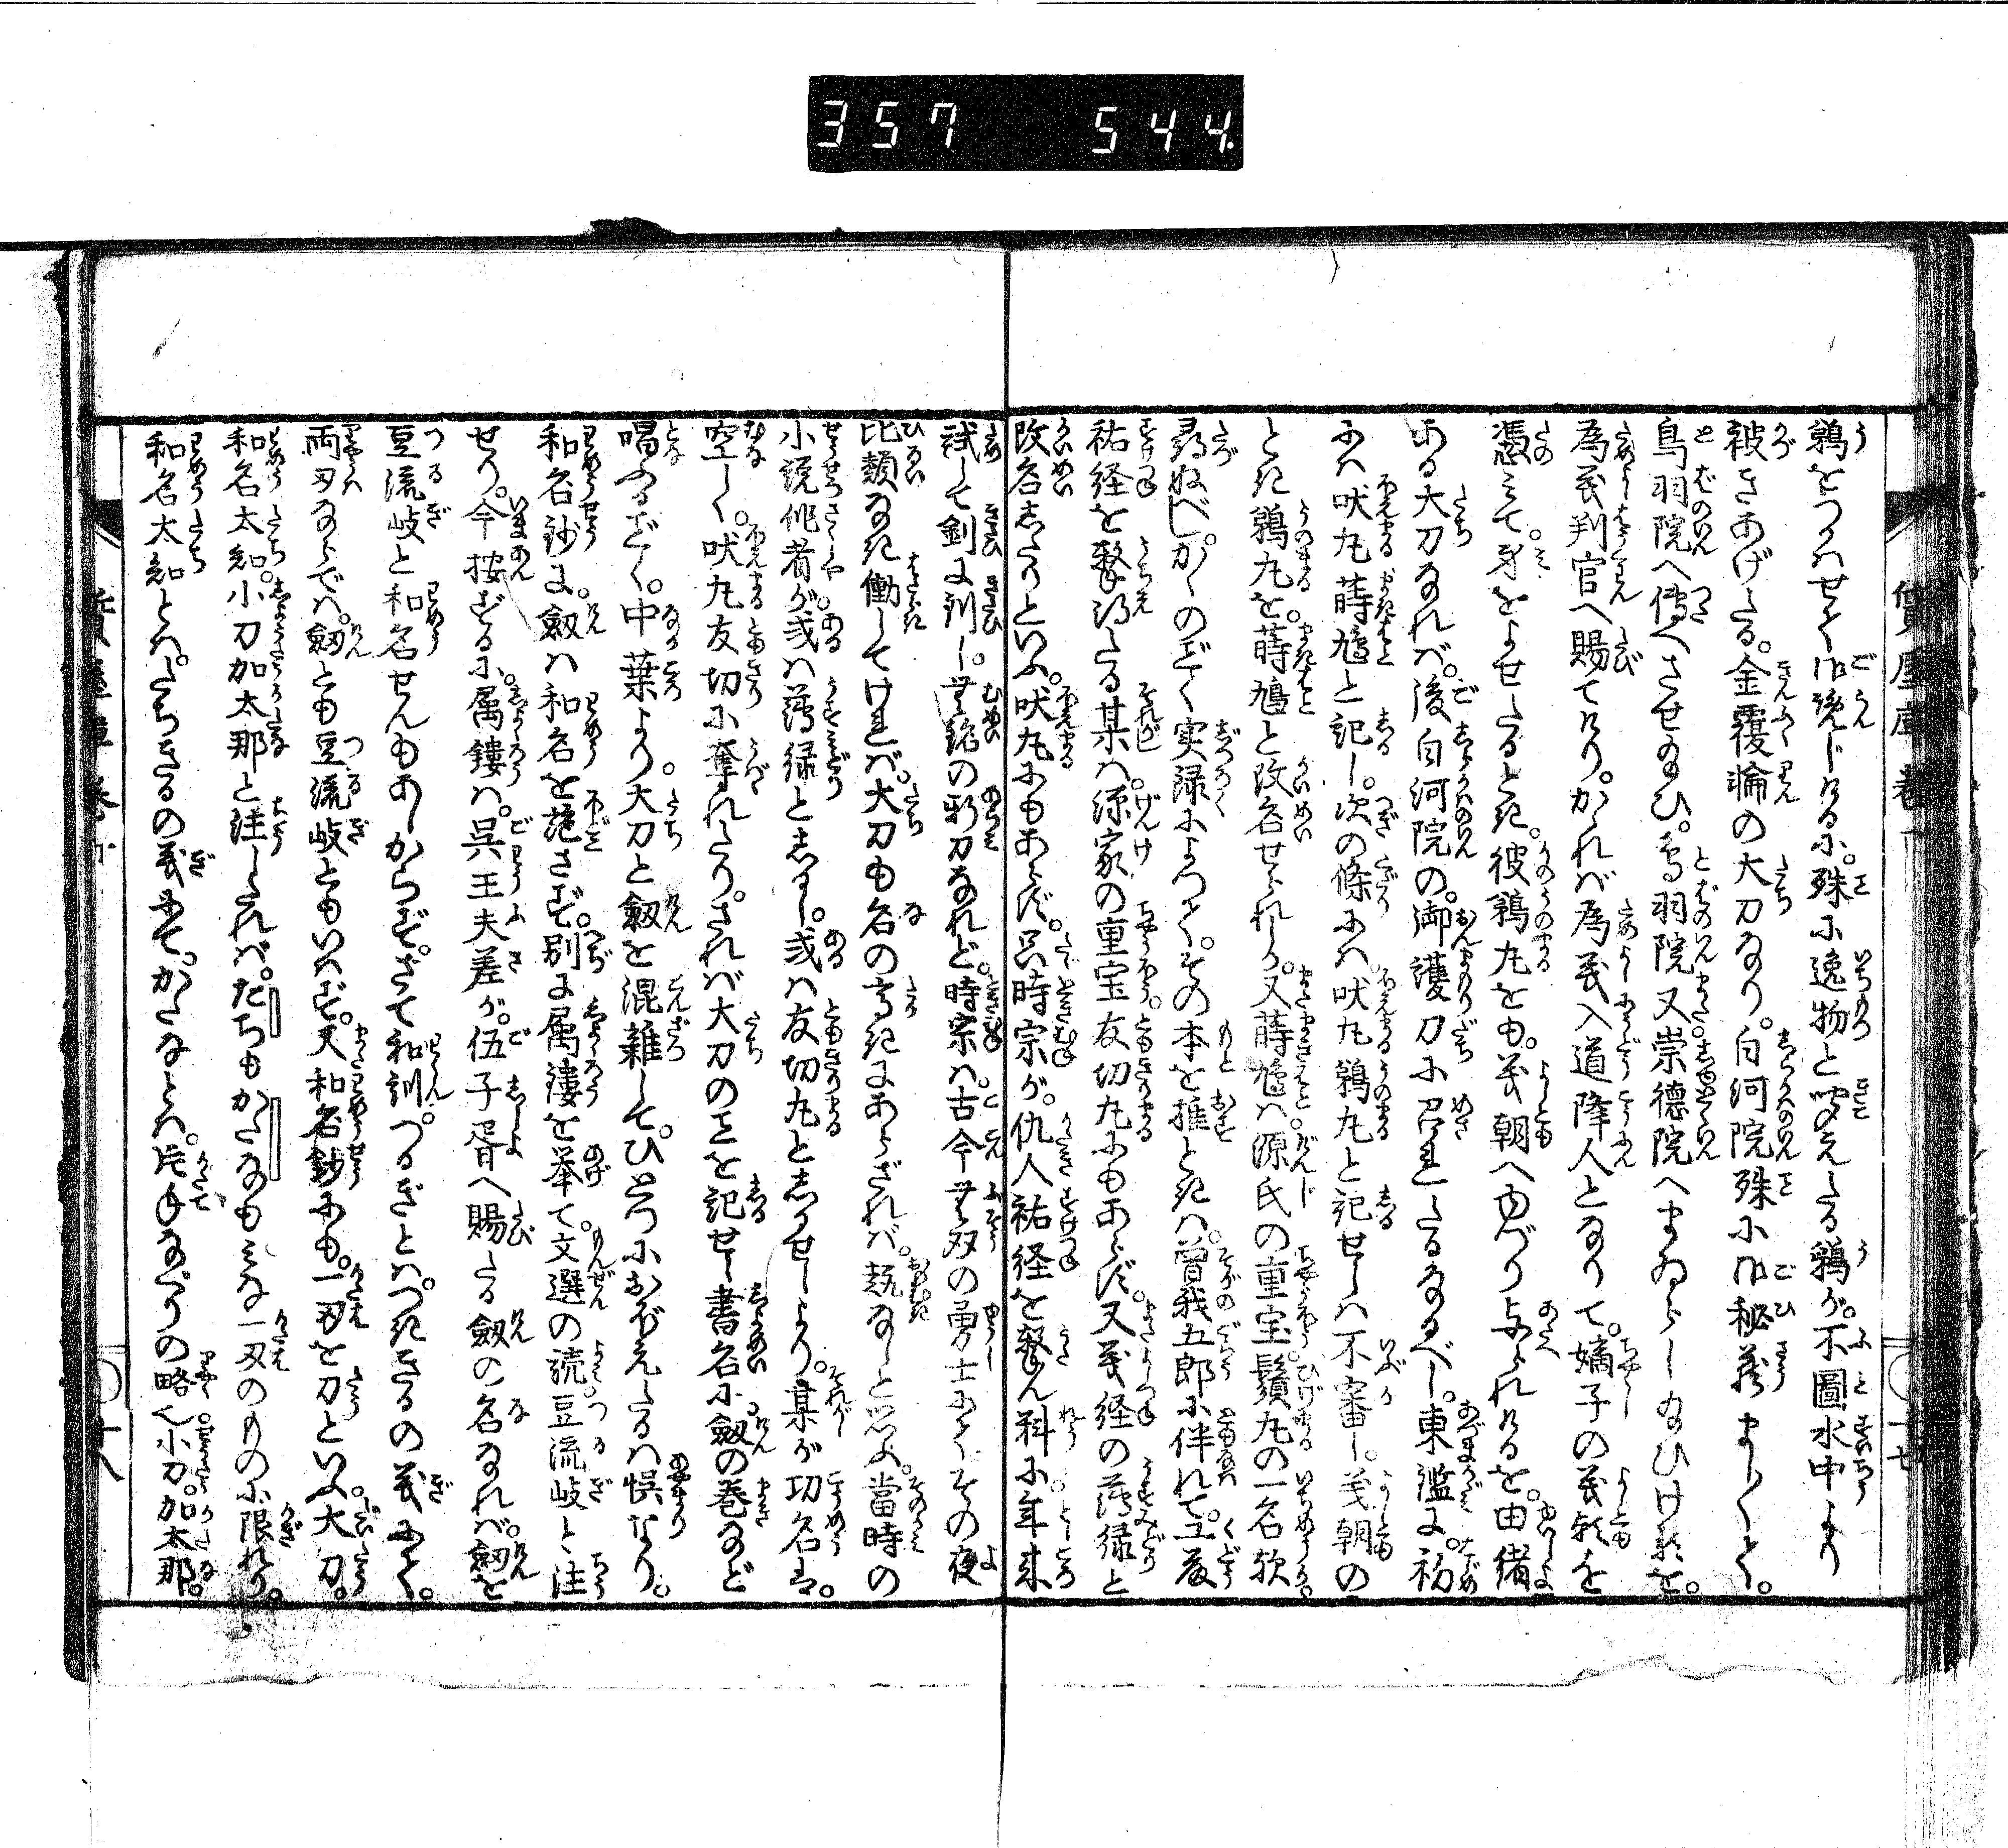 357 544
鵜をつかはせて御覧じけるに。殊に逸物と聞えたる鵜が。不圖水中より
被きあげたる。金覆輪の大刀なり。白河院殊に御秘蔵ましまして。
鳥羽院へ傳へさせ給ひ。鳥羽院又崇徳院へまゐらし給ひけるを。
為義判官へ賜てけり。かゝれば為義入道降人となりて。嫡子の義朝を
憑みて。身をよせたるとき。彼鵜丸をも。義朝へゆづり与られけるを。由緒
ある大刀なれば。後白河院の。御護刀に召れたるなるべし。東鑑に。初
には吠丸蒔鳩と記し。次の條には吠丸鵜丸と記せしは不審し。義朝の
とき鵜丸を。蒔鳩と改名せられしか。又蒔鳩は。源氏の重宝鬚丸の一名歟
尋ぬべし。かくのごとく実録によつて。その本を推ときは。曽我五郎に伴れて。工藤
祐経を撃得たる某は。源家の重宝友切丸にもあらず。又義経の薄緑と
改名したりといふ。吠丸にもあらず。只時宗が。仇人祐経を撃ん料に年来
試して釗に釗し。無銘の新刀なれど。時宗は。古今無双の勇士にてその夜
比類なき働してければ。大刀も名の高きにあらざれば。熱なしと思ふ。當時の
小説作者が。或は薄緑としるし。或は友切丸としるせしより。某が功名は。
空しく。吠丸友切に奪れたり。されば大刀の事を記せし書名に劔の巻など
唱ふるごとく。中葉より。大刀と劔を混雑して。ひとつにおぼえたるは悞なり。
和名鈔に。劔は和名を施さず。別に属鏤を挙て。文選の読。豆流岐と注
せり。今按ずるに。属鏤は。呉王夫差が。伍子胥へ賜たる劔の名なれば。劔を
豆流岐と和名せんもあしからず。さて和訓。つるぎとは。つききるの義にて。
両刃ならでは。劔とも豆流岐ともいはず。又和名鈔にも。一刃を刀といふ。大刀。
和名太知。小刀加太那と注したれば。たちもかたなもみな一刃のものに限れり。
和名太知とは。たちきるの義にて。かたなとは。片手なぐりの略也小刀。加太那。